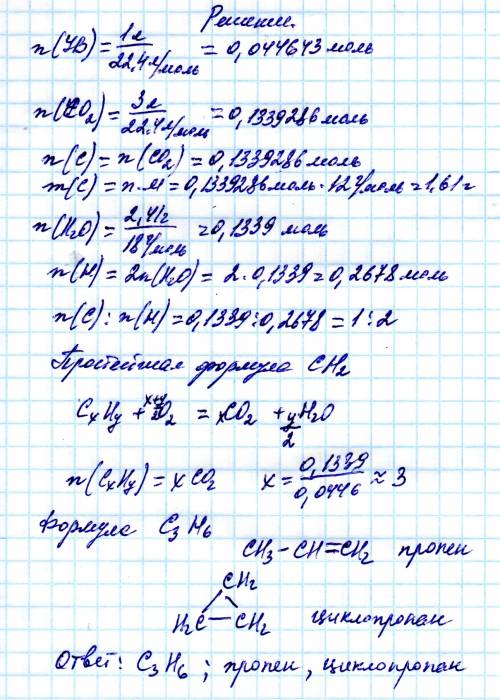 Решение.
n(УВ) = 1л / 22,4л/моль = 0,044643 моль
n(CO₂) = 3л / 22.4л/моль = 0,1339286 моль
n(C) = n(CO₂) = 0,1339286 моль
m(C) = n·M = 0,1339286 моль · 12 г/моль = 1,61г
n(H₂O) = 2,41г / 18г/моль = 0,1339 моль
n(H) = 2n(H₂O) = 2·0,1339 = 0,2678 моль
n(C) : n(H) = 0,1339 : 0,2678 = 1 : 2
Простейшая формула CH₂
CₓHy + O₂ = xCO₂ + y/2 H₂O
n(CₓHy) = x CO₂ x = 0,1339 / 0,0446 ≈ 3
Формула C₃H₆
CH₃ – CH = CH₂ пропен
CH₂
H₂C — CH₂ циклопропан
Ответ: C₃H₆ ; пропен, циклопропан